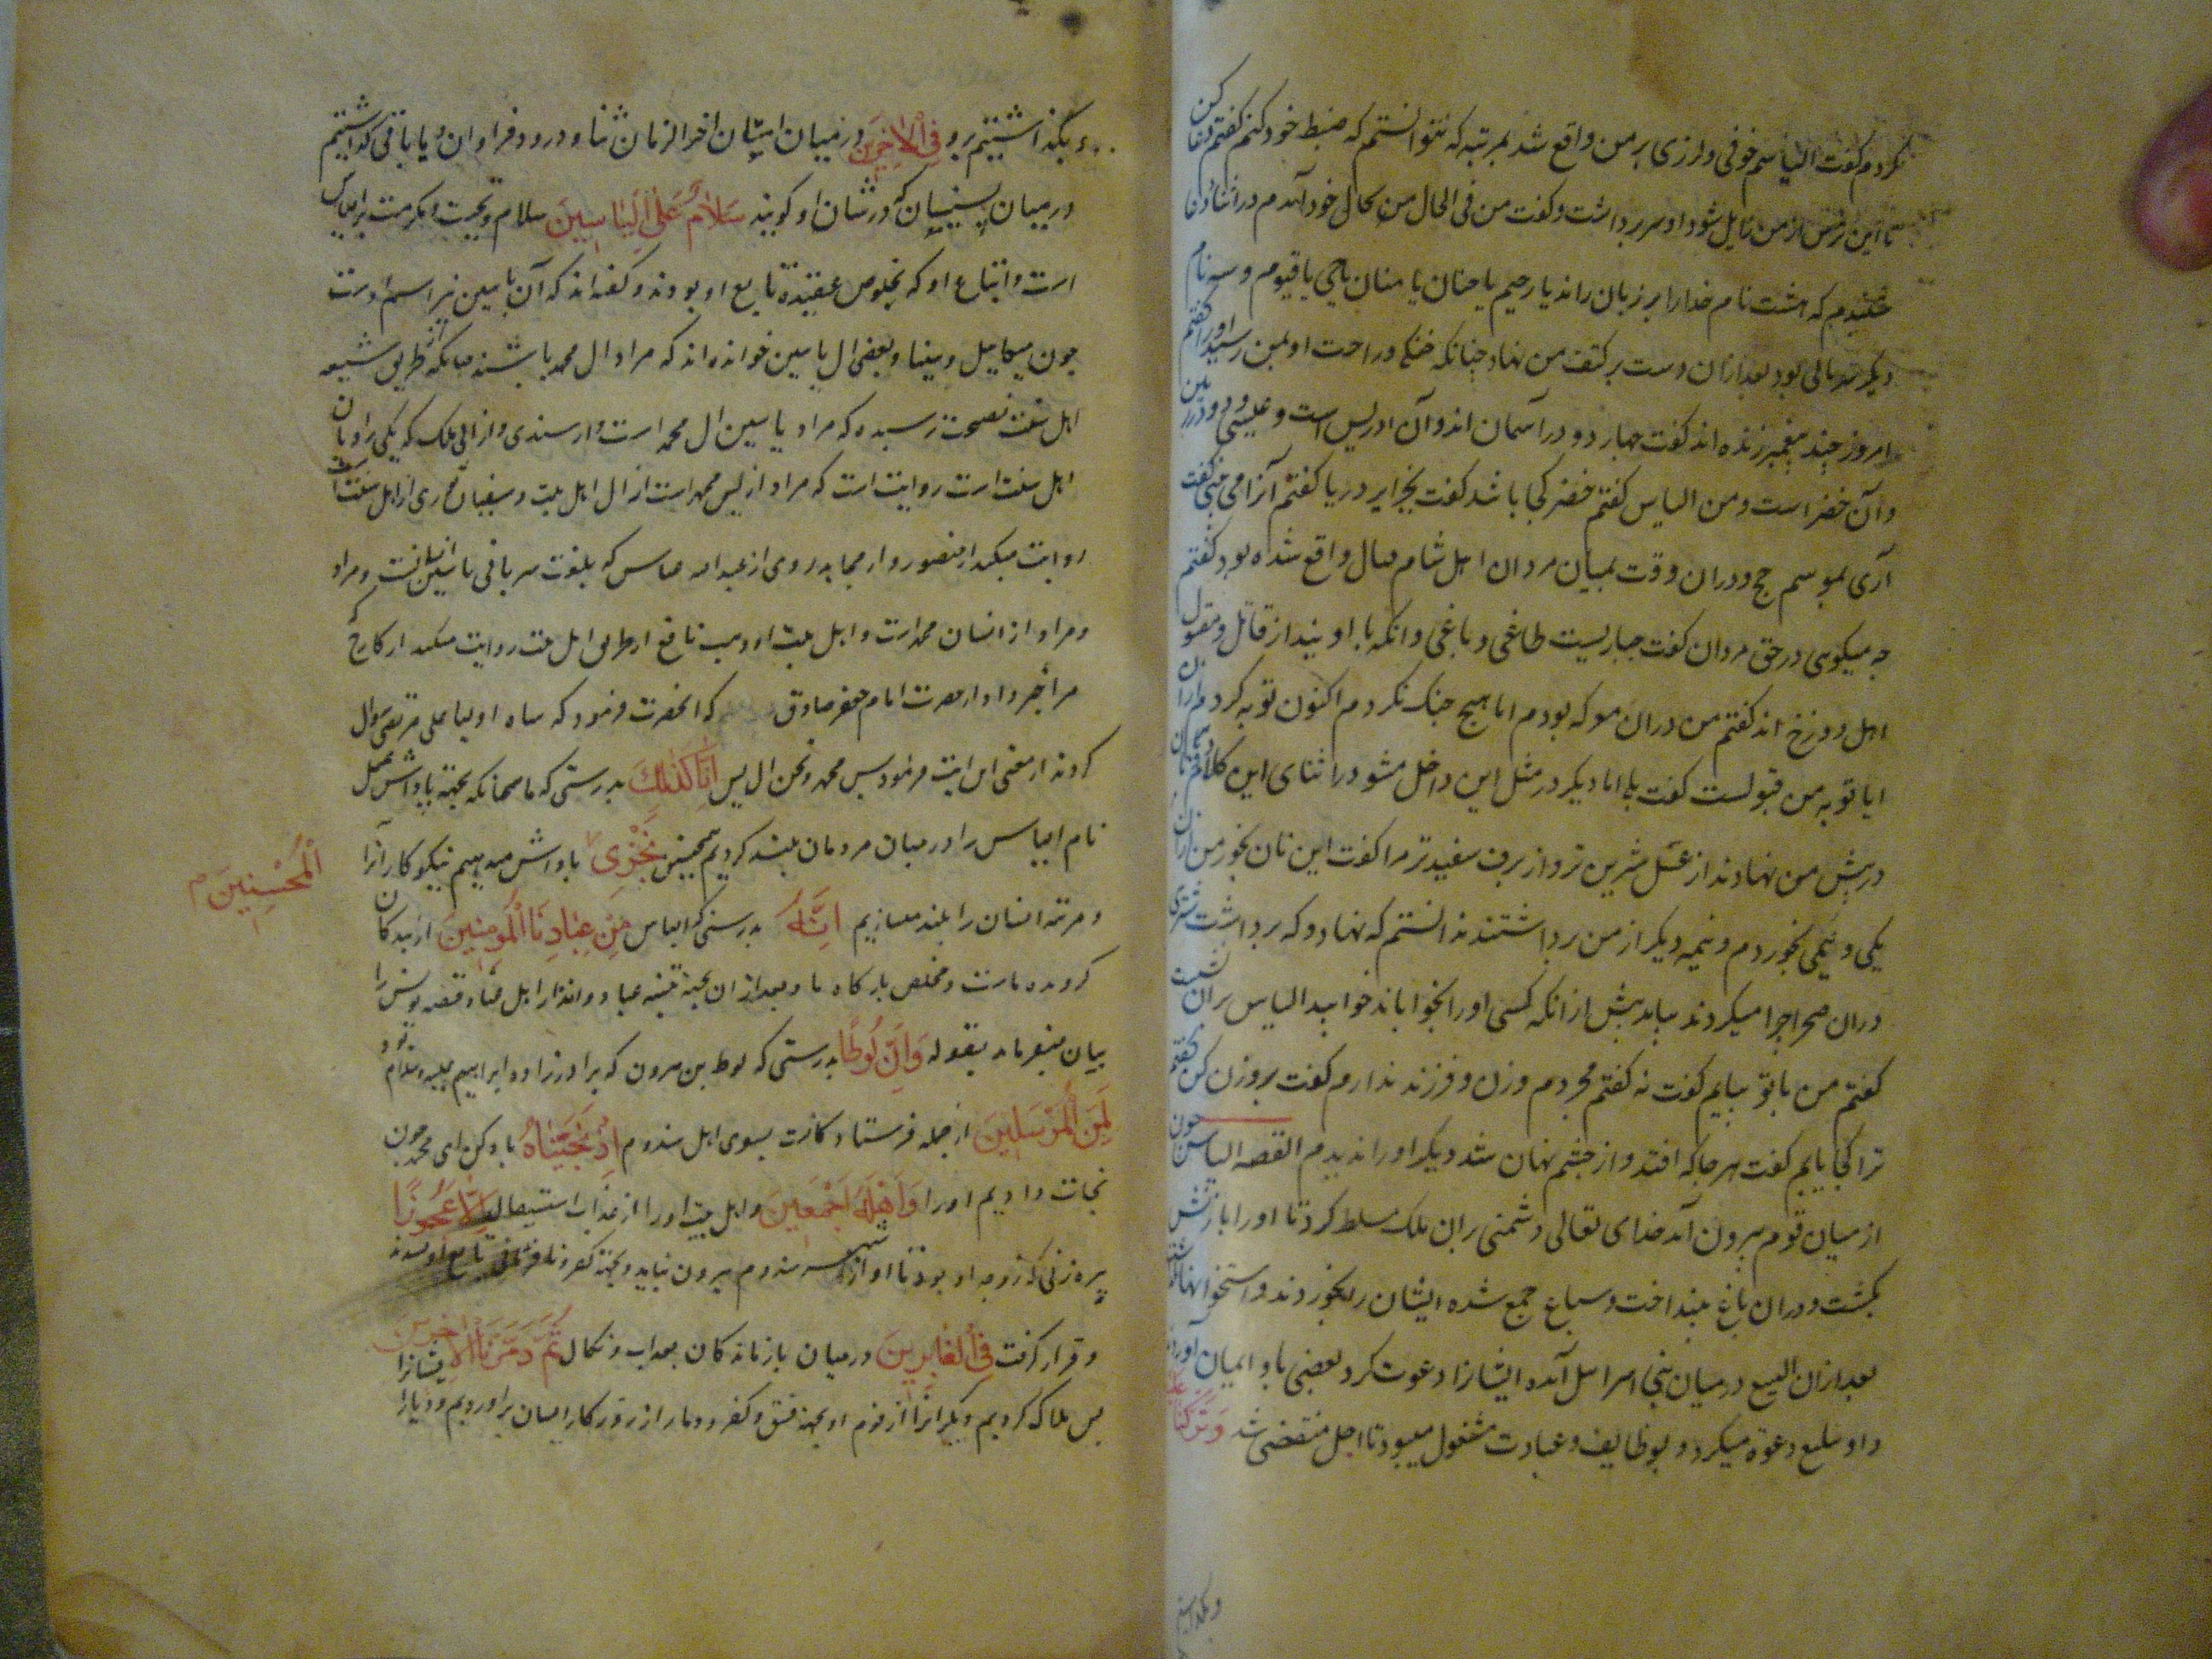 نکردم گفت الیاسم خوفی ولرزی بر من واقع شد بمرتبه که نتوانستم که ضبط خود کنم گفتم دعا کن
تا این از من زایل شود او سر برداشت و گفت من فی الحال من بحال خود آمدم در اثنا دعا
شنیدم که هشت نام خدا را بر زبان راند یا رحیم یا حنان یا منان یا حی یا قیوم و سه نام
دیگر بود بعد ازان دست بر کتف من نهاد چنانکه خنکی و راحت او بمن رسید او را گفتم
امروز چند پیغمبر زنده اند گفت چهار دو در آسمان اند و آن ادریس است و عیسی و دو در زمین
و آن خضر است و من الیاس گفتم خضر کجا باشد گفت بجزایر دریا گفتم آنرا می بینی گفت
آری بموسم حج و دران وقت بمیان مردان اهل شام واقع شده بود گفتم
چه میکوی در حق مردان گفت جباریست طاغی و باغی و انکه با او بیند از قاتل و مقتول
اهل دوزخ اند گفتم من دران معرکه بودم اما هیچ جنک نکردم اکنون توبه کردم
ایا توبه من قبولست گفت بلی اما دیکر در مثل این داخل مشو در اثنای این کلام
در پیش من نهادند از عسل شرین تر و از برف سفیدتر مرا گفت این نان بخور من ازان
یکی و نیمی بخوردم و نیمه دیکر از من برداشتند ندانستم که نهاد و که برداشت
دران صحرا چرا میکردند بیامد پیش از انکه کسی او را بخواباند خوابید الیاس بران نشست
گفتم من با تو بیایم گفت نه گفتم مجردم و زن و فرزند ندارم گفت برو زن کن گفتم
ترا کجا یابم گفت هر جا که افتد و از چشم نهان شد دیکر او را ندیدم القصه الیاس چون
از میان قوم بیرون آمد خدای تعالی دشمنی بران ملک مسلط کرد تا او را با زنش
بکشت و دران باغ بینداخت و سباع جمع شده ایشان را بخوردند و استخوانها
بعد ازان الیسع در میان بنی اسرائیل آمده ایشانرا دعوت کرد بعضی باو ایمان آوردند
و او تبلیغ دعوة میکرد و بوظایف و عبادت مشغول میبود تا اجل منقضی شد وَتَرَكْنَا عَلَيْهِ
و بکذاشتیم
و بکذاشتیم برو فِی الْاٰخِرِینَ در میان ایشان اخر الزمان ثنا و درود فراوان و یا باقی کذاشتیم
در میان پسینیان که در شان او کویند سَلَامٌ عَلٰی اِلْیَاسِینَ سلام و تحیت و مکرمت بر الیاس
است و اتباع او که بخلوص عقیده تابع او بودند و گفته اند که آن یاسین نیز اسم اوست
چون میکاییل و سینا و بعضی ال یاسین خوانده اند که مراد ال محمد باشند بطریق شیعه
اهل سنت بصحت رسیده که مراد یاسین ال محمد است و از سندی و از ابی ملک که یکی راویان
اهل سنت است روایت است که مراد از یس محمد است از ال اهل بیت و سفیان ثوری از اهل سنت
روایت میکند از منصور و از مجاهد و وی از عبد الله عباس که بلغت سریانی یاسین انسانست و مراد
و مراد از انسان محمد است و اهل بیت او و نافع از طریق اهل بیت روایت میکند از
مرا خبر داد از حضرت امام جعفر صادق که انحضرت فرمود که شاه اولیا علی مرتضی سوال
کردند از معنی این ایت فرمود یس محمد و نحن ال یس اِنَّا كَذٰلِكَ بدرستی که ما همچنانکه بجهة پاداش عمل
نام الیاس را در میان مردمان بلند کردیم همچنین نَجْزِی پاداش میدهیم نیکوکارانرا
الْمُحْسِنِینَ
و مرتبه ایشان را بلند میسازیم اِنَّهُ بدرستی که الیاس مِنْ عِبَادِنَا الْمُؤْمِنِینَ از بندکان
کرویده ماست و مخلص بارکاه ما و بعد ازان بجهة تنبیه عباد و انذار اهل عناد قصه یونس را
بیان میفرماید بقوله وَاِنَّ لُوطًا بدرستی که لوط بن هرون که برادرزاده ابراهیم علیه السلام بود
لَمِنَ الْمُرْسَلِینَ از جمله فرستادکانست بسوی اهل سدوم اِذْ نَجَّیْنَاهُ یاد کن ای محمد چون
نجات دادیم او را وَاَهْلَهُ اَجْمَعِینَ و اهل بیت او را از عذاب استیصال اِلَّا عَجُوزًا
پیره زنی که زوجه او بود تا او از شهر سدوم بیرون نیاید و بجهة کفر و تابع او نشد
و قرار کرفت فِی الْغَابِرِینَ در میان بازماندکان بعذاب و نکال ثُمَّ دَمَّرْنَا الْاٰخَرِینَ
پس هلاک کردیم دیکرانرا از قوم او بجهة فسق و کفر و دمار از روزکار ایشان براوردیم و دیار